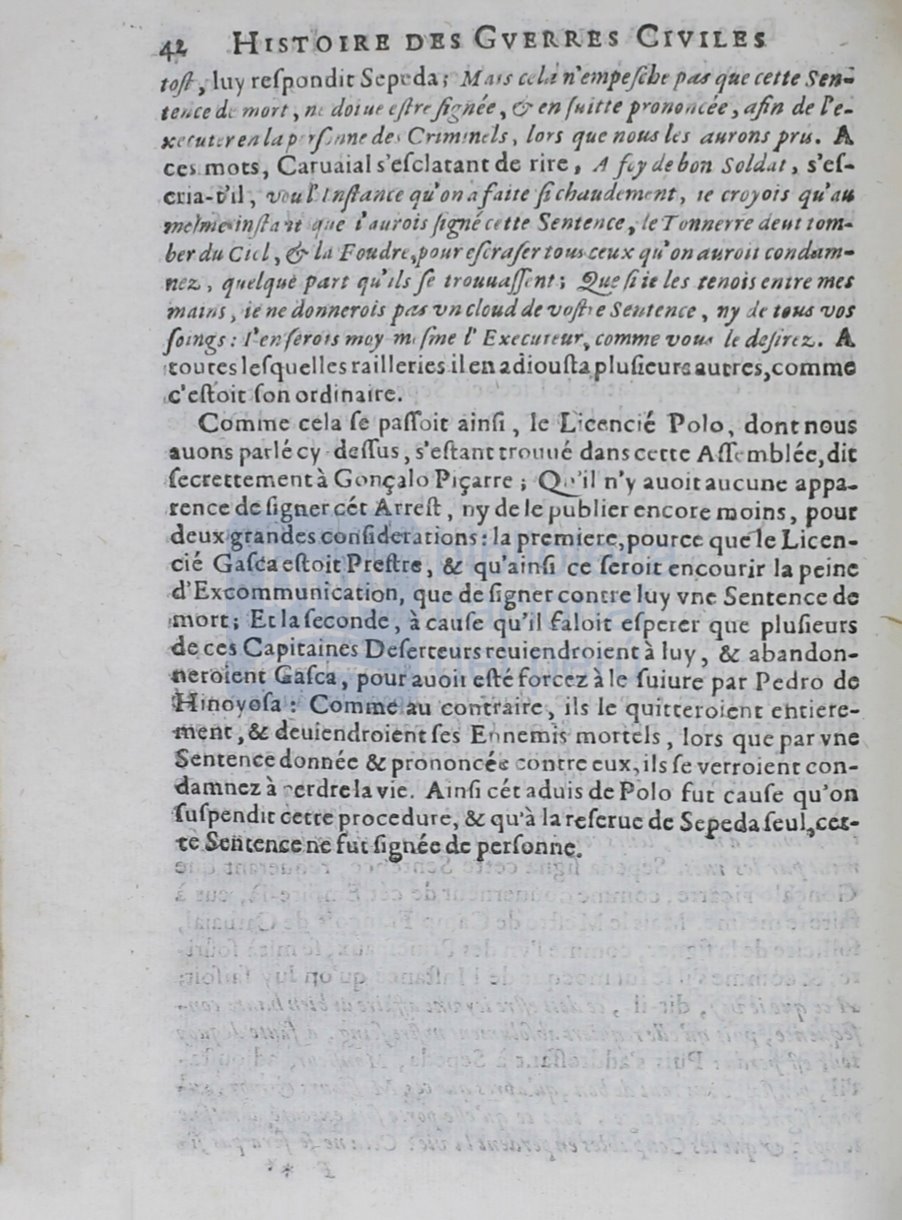 42 HISTOIRE DES GVERRES CIVILES
tost, luy respondit Sepeda; Mais celà n'empesche pas que cette Sen-
tence de mort, ne doiue estre signée, & en suitte prononcée, afin de l'e-
xecuter en la personne des Criminels, lors que nous les aurons pris. A
ces mots, Caruaial s'esclatant de rire, A foy de bon Soldat, s'es-
cria-t'il, veu l'Instance qu'on a faite si chaudement, ie croyois qu'au
mesme instant que i'aurois signé cette Sentence, le Tonnerre deut tom-
ber du Ciel, & la Foudre, pour escraser tous ceux qu'on auroit condam-
nez, quelque part qu'ils se trouuassent; Que si ie les tenois entre mes
mains, ie ne donnerois pas vn cloud de vostre Sentence, ny de tous vos
soings: I'en serois moy mesme l'Executeur, comme vous le desirez. A
toutes lesquelles railleries il en adiousta plusieurs autres, comme
c'estoit son ordinaire.
Comme cela se passoit ainsi, le Licencié Polo, dont nous
auons parlé cy dessus, s'estant trouué dans cette Assemblée, dit
secrettement à Gonçalo Piçarre; Qu'il n'y auoit aucune appa-
rence de signer cét Arrest, ny de le publier encore moins, pour
deux grandes considerations: la premiere, pource que le Licen-
cié Gasca estoit Prestre, & qu'ainsi ce seroit encourir la peine
d'Excommunication, que de signer contre luy vne Sentence de
mort; Et la seconde, à cause qu'il faloit esperer que plusieurs
de ces Capitaines Deserteurs reuiendroient à luy, & abandon-
neroient Gasca, pour auoir esté forcez à le suiure par Pedro de
Hinoyosa: Comme au contraire, ils le quitteroient entiere-
ment, & deuiendroient ses Ennemis mortels, lors que par vne
Sentence donnée & prononcée contre eux, ils se verroient con-
damnez à perdre la vie. Ainsi cét aduis de Polo fut cause qu'on
suspendit cette procedure, & qu'à la reserue de Sepeda seul, cet-
te Sentence ne fut signée de personne.